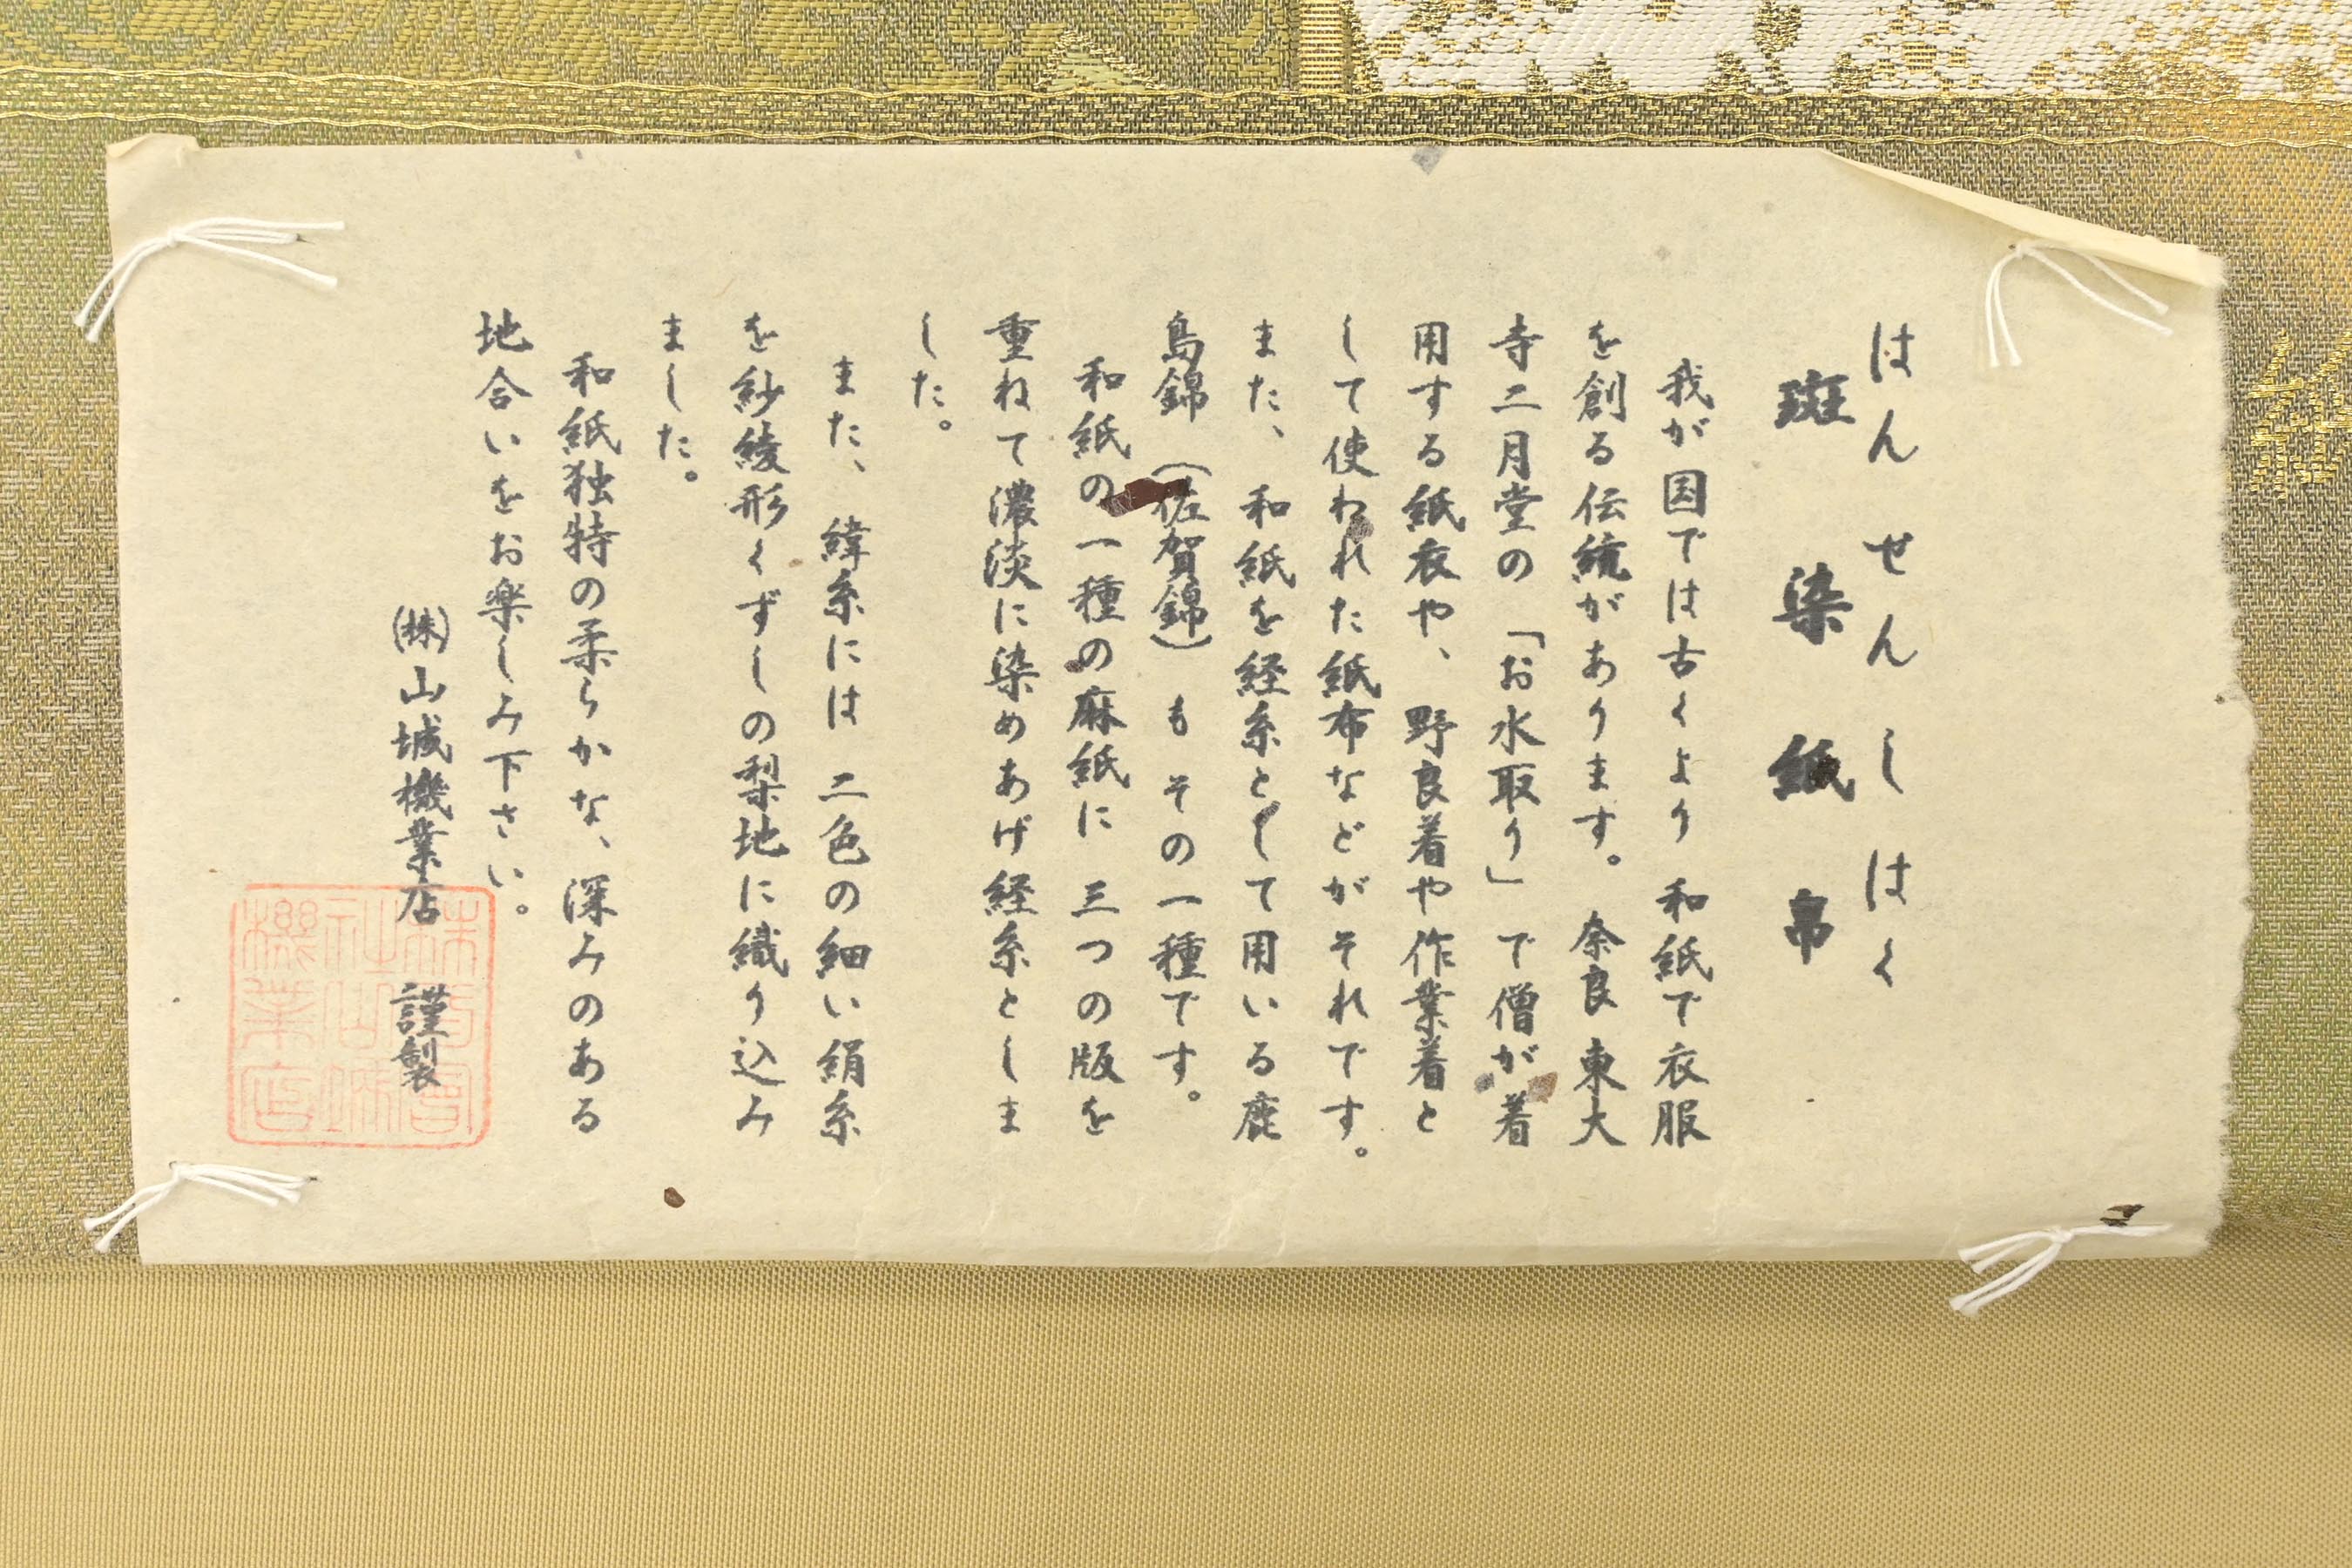 はんせんしはく
斑染紙帛
我が国では古くより 和紙で衣服
を創る伝統があります。 奈良 東大
寺二月堂の 「お水取り」 で僧が着
用する紙衣や、野良着や作業着と
して使われた紙布などがそれです。
また、 和紙を経糸として用いる鹿
島錦 (佐賀錦) も その一種です。
和紙の一種の麻紙に 三つの版を
重ねて濃淡に染めあげ経糸としま
した。
また、 緯糸には 二色の細い絹糸
を紗綾形くずしの梨地に織り込み
ました。
和紙独特の柔らかな、深みのある
地合いをお楽しみ下さい。
㈱山城機業店 謹製
株式會社山城機業店